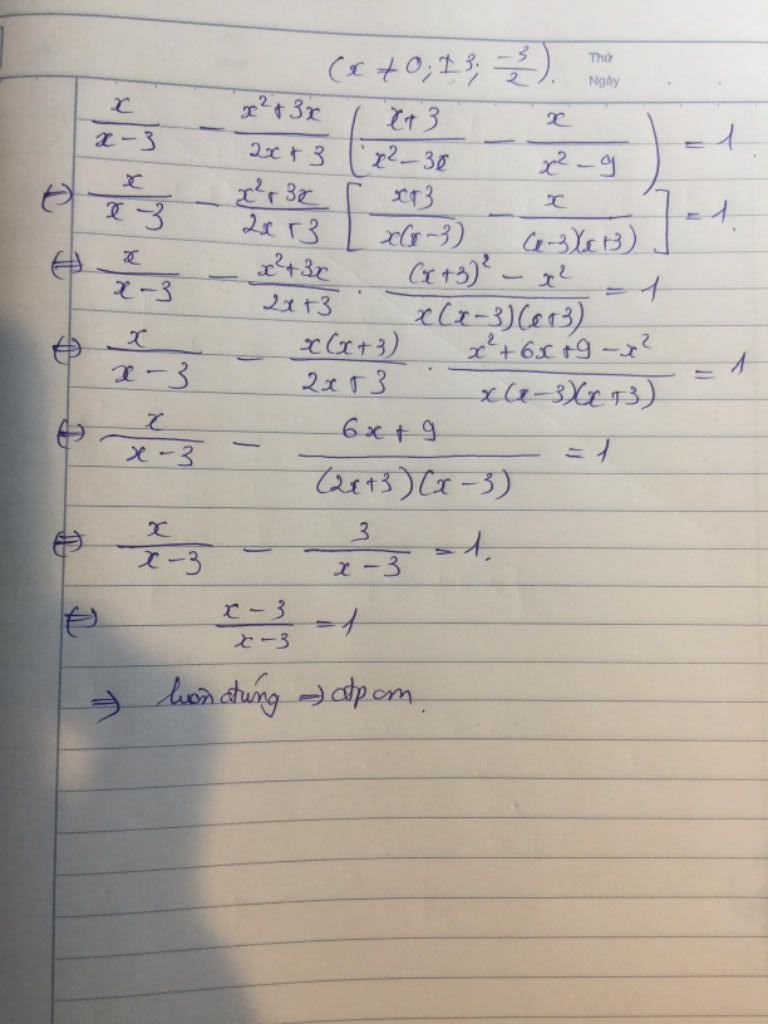 (x ≠ 0; ±3; -3/2). Thứ
Ngày
x/(x-3) - (x²+3x)/(2x+3) ((x+3)/(x²-3x) - x/(x²-9)) = 1
⇔ x/(x-3) - (x²+3x)/(2x+3) [(x+3)/(x(x-3)) - x/((x-3)(x+3))] = 1.
⇔ x/(x-3) - (x²+3x)/(2x+3) . ((x+3)² - x²)/(x(x-3)(x+3)) = 1
⇔ x/(x-3) - x(x+3)/(2x+3) . (x²+6x+9-x²)/(x(x-3)(x+3)) = 1
⇔ x/(x-3) - (6x+9)/((2x+3)(x-3)) = 1
⇔ x/(x-3) - 3/(x-3) = 1.
⇔ (x-3)/(x-3) = 1
⇒ luôn đúng ⇒ đpcm.